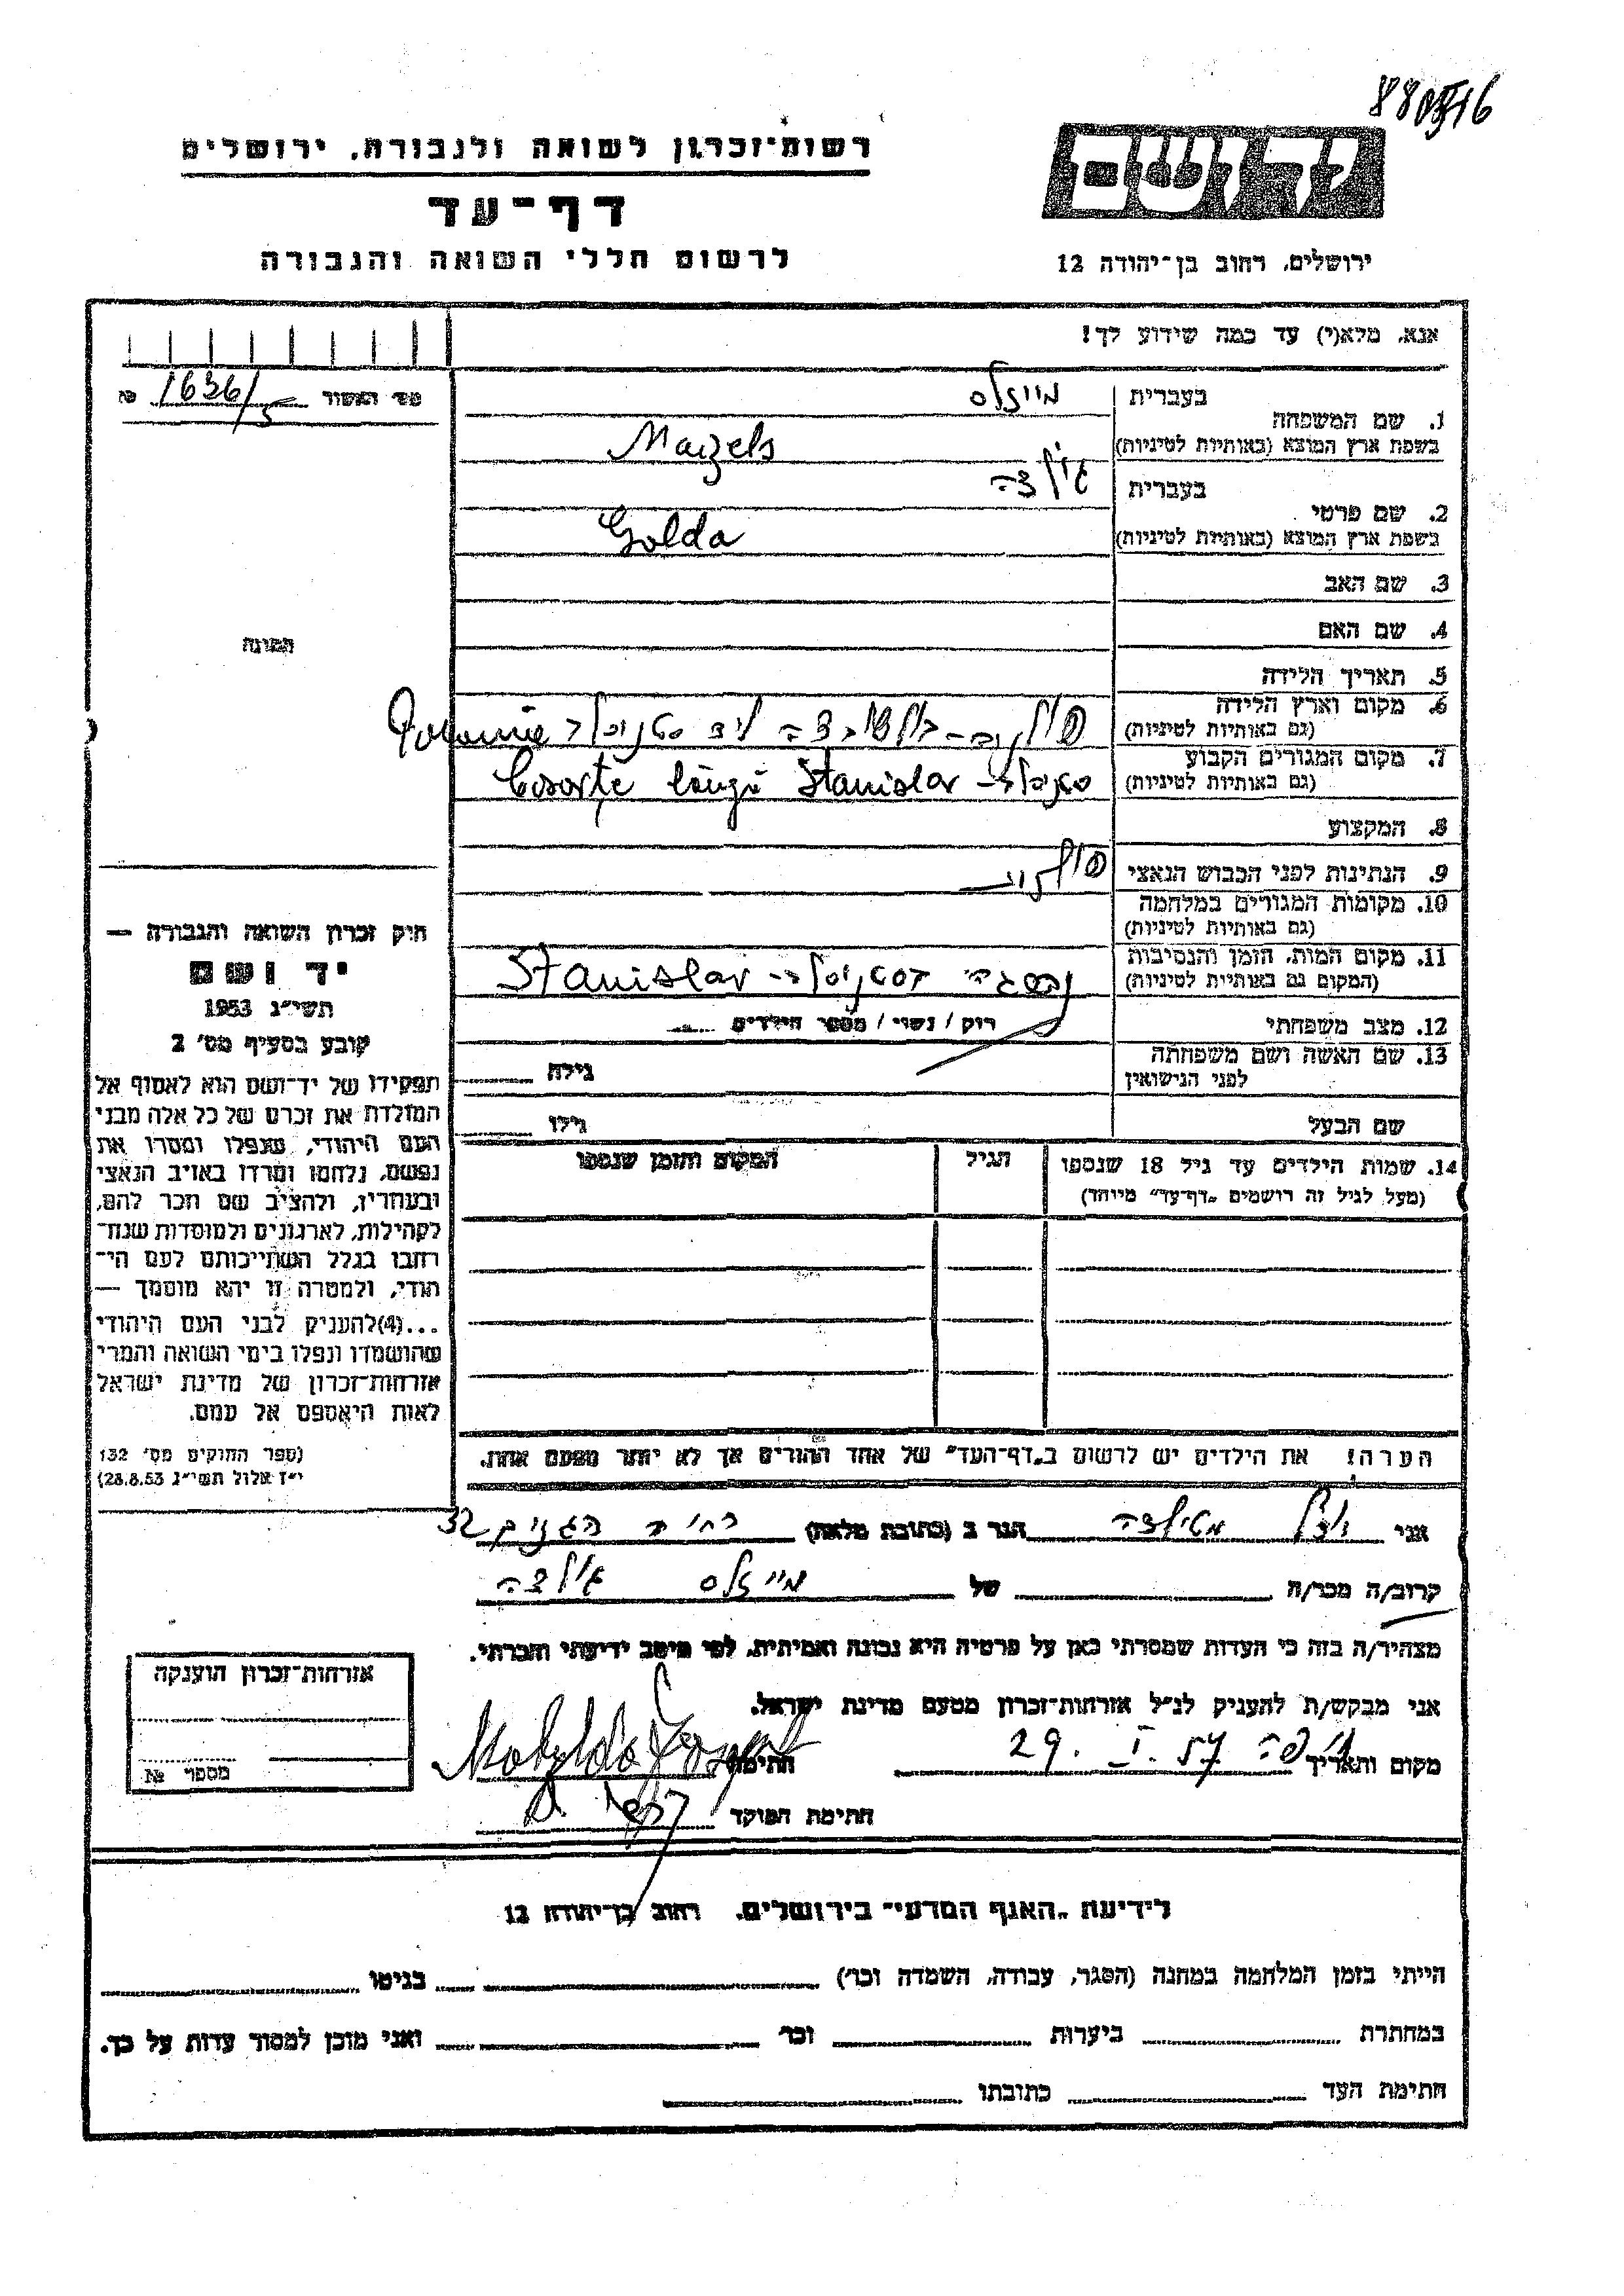 רשות־זכרון לשואה ולגבורה, ירושלים
דף־עד
לרשום חללי השואה והגבורה
יד ושם
ירושלים, רחוב בן־יהודה 12
אנא, מלא(י) עד כמה שידוע לך!
מס' האשור 1636/5 №
1. שם המשפחה
בעברית מייזלס
בשפת ארץ המוצא (באותיות לטיניות) Maizels
2. שם פרטי
בעברית גולדה
בשפת ארץ המוצא (באותיות לטיניות) Golda
3. שם האב
4. שם האם
5. תאריך הלידה
6. מקום וארץ הלידה
(גם באותיות לטיניות)
7. מקום המגורים הקבוע
(גם באותיות לטיניות) Stanislav
8. המקצוע
9. הנתינות לפני הכבוש הנאצי
10. מקומות המגורים במלחמה
(גם באותיות לטיניות)
11. מקום המות, הזמן והנסיבות
(המקום גם באותיות לטיניות) Stanislav
12. מצב משפחתי רוק / נשוי / מספר הילדים
13. שם האשה ושם משפחתה
לפני הנישואין
גילה
שם הבעל
גילו
14. שמות הילדים עד גיל 18 שנספו
(מעל לגיל זה רושמים „דף־עד" מיוחד)
הגיל
המקום והזמן שנספו
הערה! את הילדים יש לרשום ב„דף־העד" של אחד ההורים אך לא יותר מפעם אחת.
התמונה
חוק זכרון השואה והגבורה —
יד ושם
תשי"ג 1953
קובע בסעיף מס' 2
תפקידו של יד־ושם הוא לאסוף אל
המולדת את זכרם של כל אלה מבני
העם היהודי, שנפלו ומסרו את
נפשם, נלחמו ומרדו באויב הנאצי
ובעוזריו, ולהציב שם וזכר להם,
לקהילות, לארגונים ולמוסדות שנח־
רבו בגלל השתייכותם לעם הי־
הודי, ולמטרה זו יהא מוסמך —
...(4)להעניק לבני העם היהודי
שהושמדו ונפלו בימי השואה והמרי
אזרחות־זכרון של מדינת ישראל
לאות היאספם אל עמם.
(ספר החוקים מס' 132
י"ז אלול תשי"ג 28.8.53)
אני מטילדה הגר ב (כתובת מלאה) 32
קרוב/ה מכר/ה של מייזלס גולדה
מצהיר/ה בזה כי העדות שמסרתי כאן על פרטיה היא נכונה ואמיתית, לפי מיטב ידיעתי והכרתי.
אני מבקש/ת להעניק לנ"ל אזרחות־זכרון מטעם מדינת ישראל.
מקום ותאריך חיפה 29. I. 57 חתימה
חתימת הפוקד
אזרחות־זכרון הוענקה
מספר №
לידיעת „האגף המדעי" בירושלים, רחוב בן־יהודה 12
הייתי בזמן המלחמה במחנה (הסגר, עבודה, השמדה וכו') בגיטו
במחתרת ביערות וכו' ואני מוכן למסור עדות על כך.
חתימת העד כתובתו